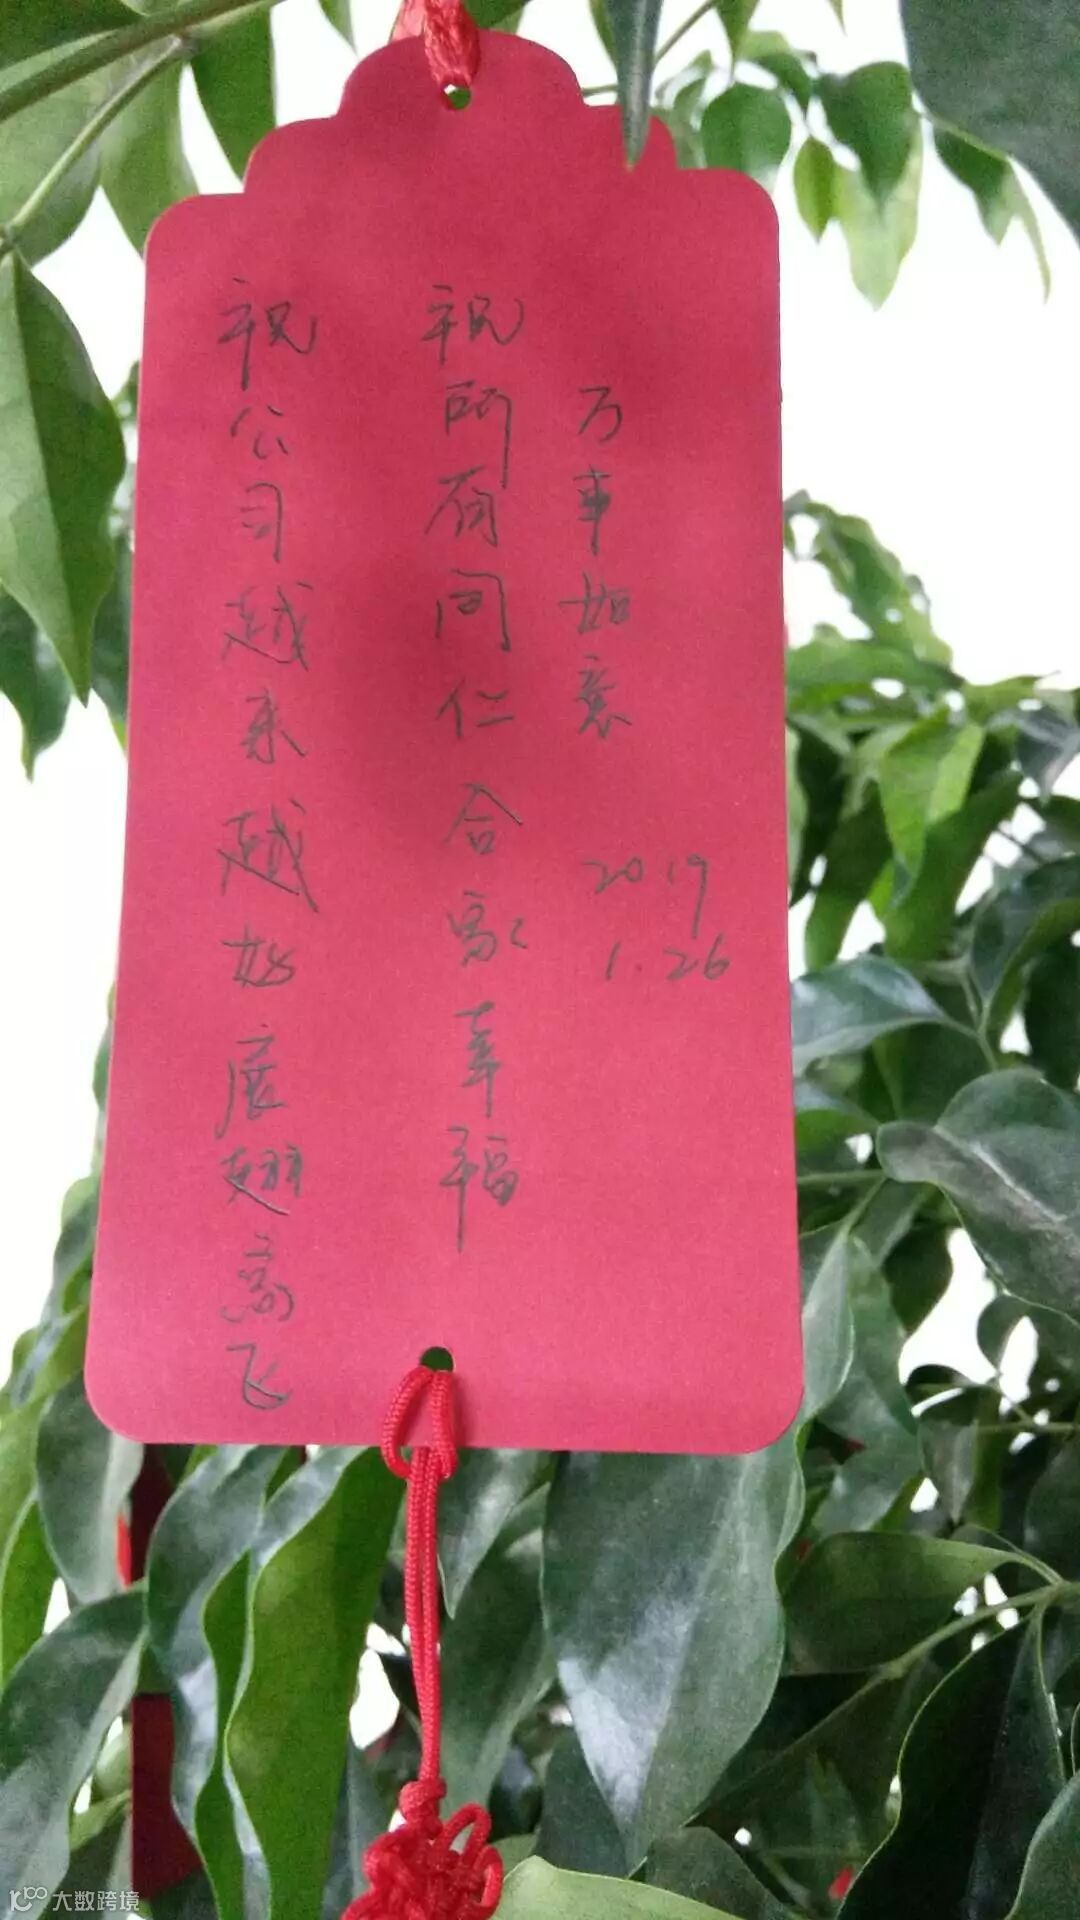 祝公司越来越好展翅高飞
祝所有同仁合家幸福
万事如意
2019
1.26
大数跨境